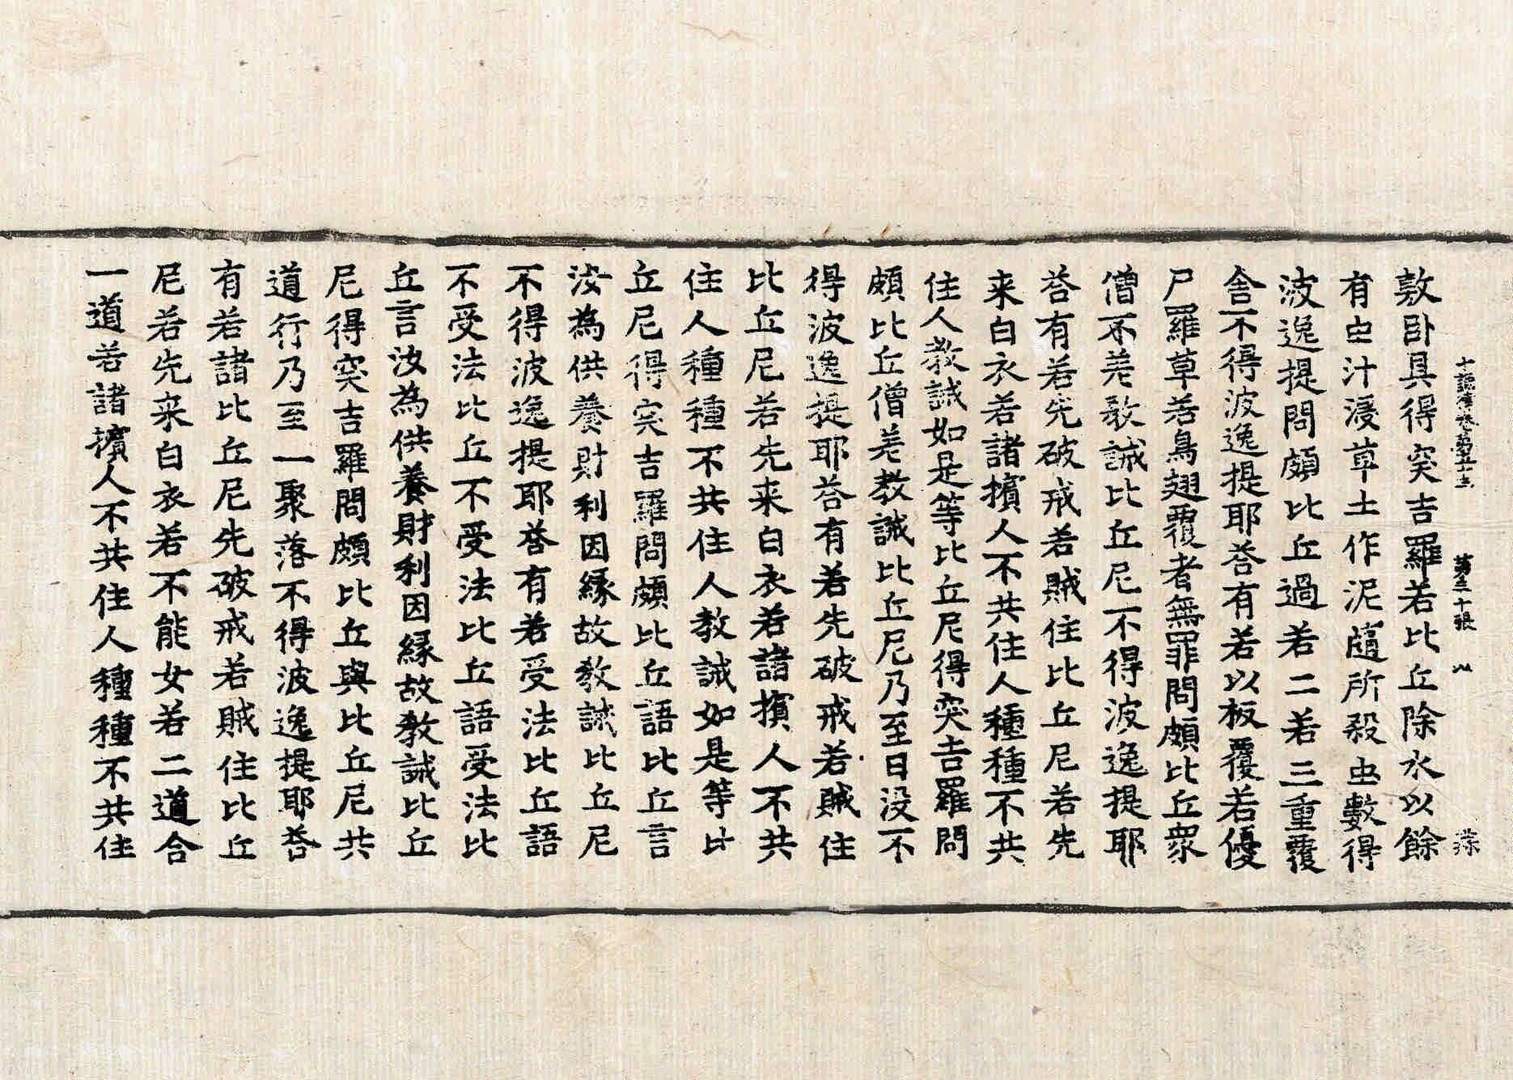 敷卧具得突吉羅若比丘除水以餘
有虫汁澆草土作泥隨所殺虫數得
波逸提問頗比丘過若二若三重覆
舎不得波逸提耶荅有若以板覆若優
尸羅草若鳥翅覆者無罪問頗比丘衆
僧不羌教誡比丘尼不得波逸提耶
荅有若先破戒若賊住比丘尼若先
来白衣若諸擯人不共住人種種不共
住人教誡如是等比丘尼得突吉羅問
頗比丘僧羌教誡比丘尼乃至日没不
得波逸提耶荅有若先破戒若賊住
比丘尼若先来白衣若諸擯人不共
住人種種不共住人教誡如是等比
丘尼得突吉羅問頗比丘語比丘言
汝為供養財利因縁故教誡比丘尼
不得波逸提耶荅有若受法比丘語
不受法比丘不受法比丘語受法比
丘言汝為供養財利因縁故教誡比丘
尼得突吉羅問頗比丘與比丘尼共
道行乃至一聚落不得波逸提耶荅
有若諸比丘尼先破戒若賊住比丘
尼若先来白衣若不能女若二道合
一道若諸擯人不共住人種種不共住